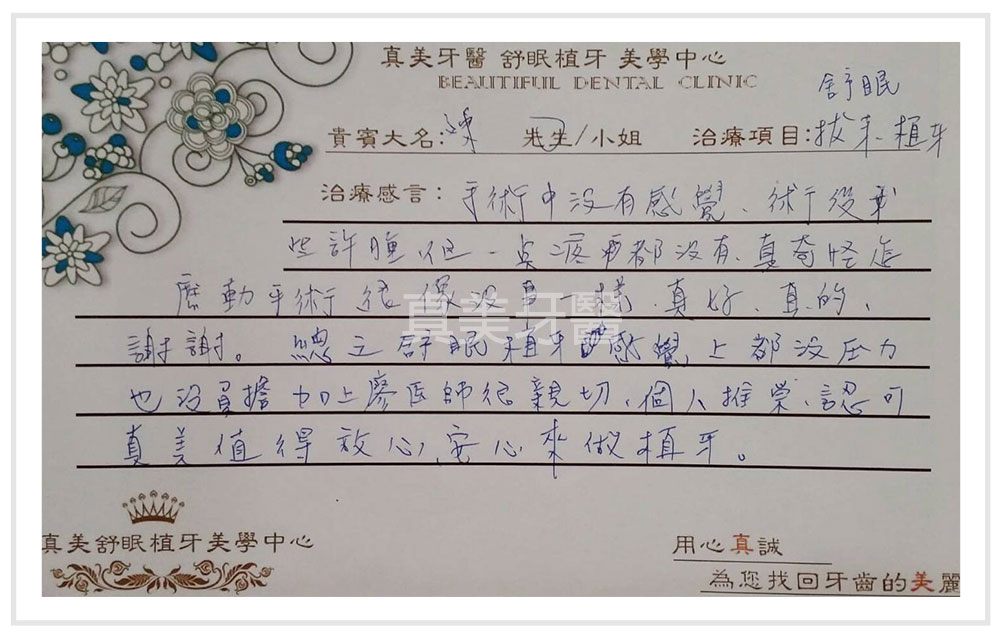 真美牙醫 舒眠植牙 美學中心
BEAUTIFUL DENTAL CLINIC
舒眠
貴賓大名:陳 先生/小姐 治療項目:拔牙、植牙
治療感言:手術中没有感覺、術後有
些許腫,但一点疼痛都没有,真奇怪怎
麼動手術後像没事一樣、真好、真的、
謝謝。 總之舒眠植牙感覺上都没压力
也没負擔 加上廖医師很親切、個人推崇、認可
真美值得放心,安心來做植牙。
真美牙醫
真美舒眠植牙美學中心
用心真誠
為您找回牙齒的美麗